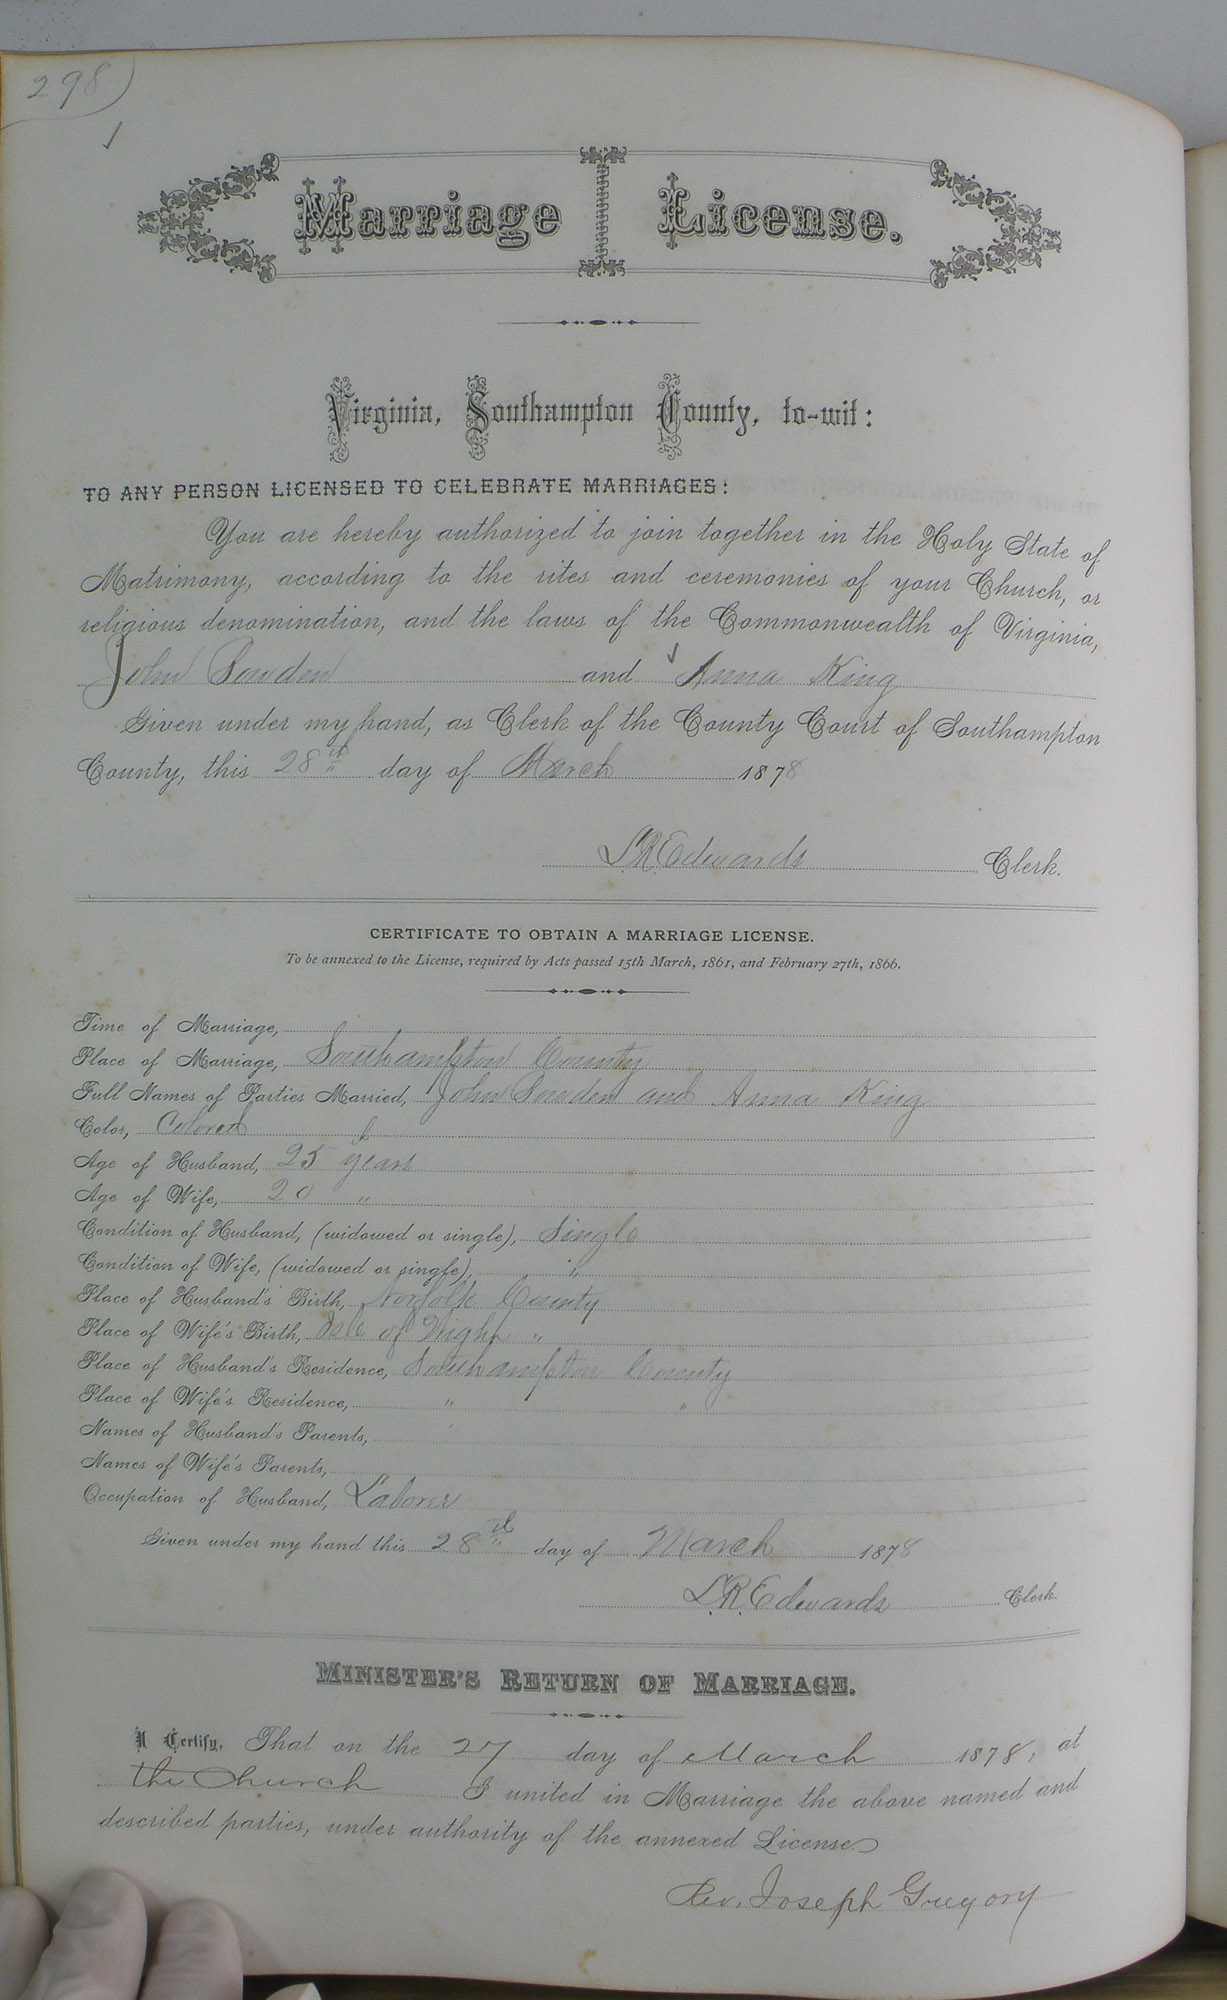 298
Marriage License.
Virginia, Southampton County, to-wit:
TO ANY PERSON LICENSED TO CELEBRATE MARRIAGES:
You are hereby authorized to join together in the Holy State of
Matrimony, according to the rites and ceremonies of your Church, or
religious denomination, and the laws of the Commonwealth of Virginia,
John Sowden and Anna King
Given under my hand, as Clerk of the County Court of Southampton
County, this 28th day of March 1878
L.R. Edwards Clerk.
CERTIFICATE TO OBTAIN A MARRIAGE LICENSE.
To be annexed to the License, required by Acts passed 15th March, 1861, and February 27th, 1866.
Time of Marriage,
Place of Marriage, Southampton County
Full Names of Parties Married, John Sowden and Anna King
Color, Colored
Age of Husband, 25 years
Age of Wife, 20 "
Condition of Husband, (widowed or single), Single
Condition of Wife, (widowed or single), "
Place of Husband's Birth, Norfolk County
Place of Wife's Birth, Isle of Wight "
Place of Husband's Residence, Southampton County
Place of Wife's Residence, " "
Names of Husband's Parents,
Names of Wife's Parents,
Occupation of Husband, Laborer
Given under my hand this 28th day of March 1878
L.R. Edwards Clerk.
MINISTER'S RETURN OF MARRIAGE.
I Certify, That on the 27 day of March 1878, at
the Church I united in Marriage the above named and
described parties, under authority of the annexed License
Rev. Joseph Gregory